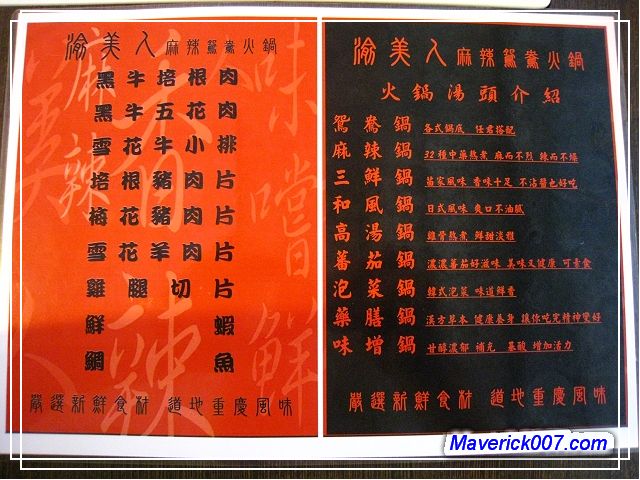 渝美人麻辣鴛鴦火鍋
黑牛培根肉
黑牛五花肉
雪花牛小排
培根豬肉片
梅花豬肉片
雪花羊肉片
雞腿切片
鮮蝦
鯛魚
嚴選新鮮食材 道地重慶風味
渝美人麻辣鴛鴦火鍋
火鍋湯頭介紹
鴛鴦鍋 各式鍋底 任君搭配
麻辣鍋 32種中藥熬煮 麻而不烈 辣而不燥
三鮮鍋 苗家風味 香味十足 不沾醬也好吃
和風鍋 日式風味 爽口不油膩
高湯鍋 雞骨熬煮 鮮甜淡雅
蕃茄鍋 濃濃蕃茄好滋味 美味又健康 可素食
泡菜鍋 韓式泡菜 味道鮮香
藥膳鍋 漢方草本 健康養身 讓你吃完精神變好
味增鍋 甘醇濃郁 補充 基酸 增加活力
嚴選新鮮食材 道地重慶風味
Maverick007.com